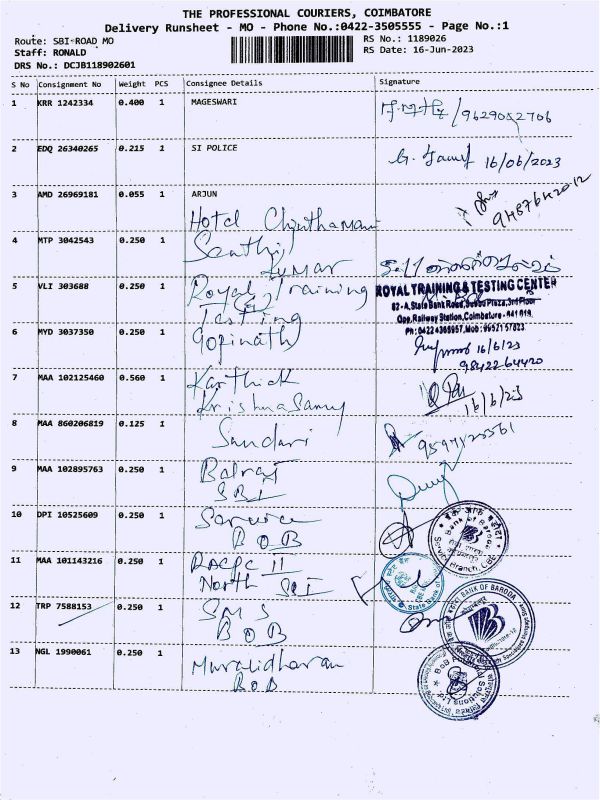 THE PROFESSIONAL COURIERS, COIMBATORE
Delivery Runsheet - MO - Phone No.:0422-3505555 - Page No.:1
Route: SBI-ROAD MO
RS No.: 1189026
Staff: RONALD
RS Date: 16-Jun-2023
DRS No.: DCJB118902601
S No Consignment No Weight PCS Consignee Details Signature
1 KRR 1242334 0.400 1 MAGESWARI
/9629052706
2 EDQ 26340265 0.215 1 SI POLICE
16/06/2023
3 AMD 26969181 0.055 1 ARJUN
9487642012
Hotel Chinthamani
4 MTP 3042543 0.250 1 Senthil
Kumar
5 VLI 303688 0.250 1 Royal Training
Testing
ROYAL TRAINING & TESTING CENTER
82-A, State Bank Road, Plaza, 3rd Floor
Opp. Railway Station, Coimbatore - 641 018.
Ph: 0422 4368957, Mob: 99521 57823
6 MYD 3037350 0.250 1 Gopinath
16/6/23
9842264420
7 MAA 102125460 0.560 1 Karthick
Krishnasamy
16/6/23
8 MAA 860206819 0.125 1 Sundari
9 MAA 102895763 0.250 1 Balraj
SBI
10 DPI 10525609 0.250 1 Service
BOB
Bank of Baroda
Service Branch
11 MAA 101143216 0.250 1 RACPC II
North SBI
State Bank of
12 TRP 7588153 0.250 1 SMS
BOB
BANK OF BARODA
13 NGL 1990061 0.250 1 Muralidharan
BOB